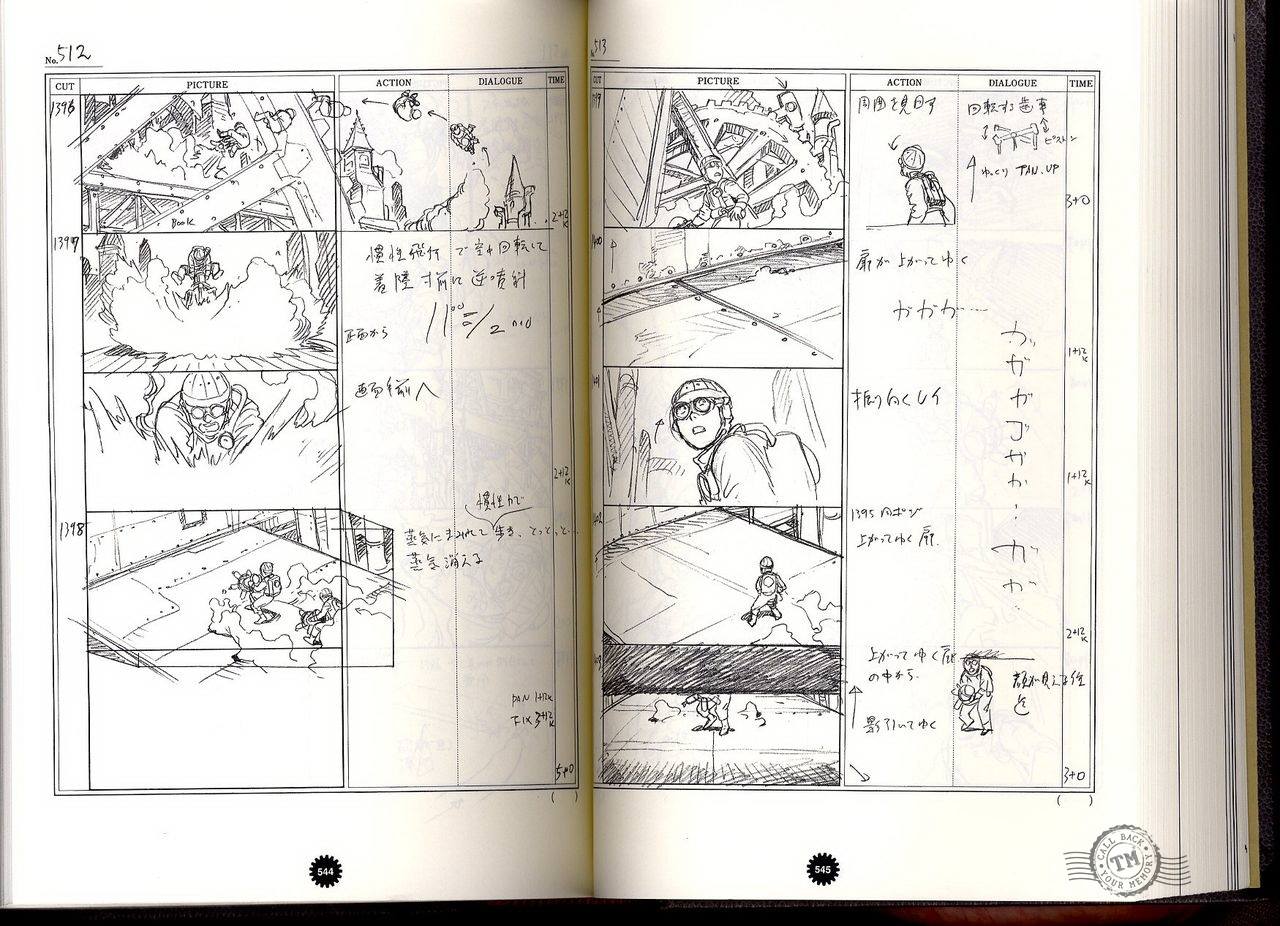 No. 512
CUT PICTURE ACTION DIALOGUE TIME
1396
BOOK
2+12K
1397
慣性飛行で空中回転して
着陸寸前に逆噴射
正面から
画面手前へ
2+12K
1398
慣性力で
蒸気にまみれて歩る、とっと、と…
蒸気消える
PAN 1+12K
FIX 3+12K
5+0
( )
544
513
CUT PICTURE ACTION DIALOGUE TIME
周囲を見回す
回転する歯車
ピストン
ゆっくり PAN.UP
3+0
扉が上がってゆく
ガガガ…
1+12K
振り向くレイ
1+12K
1395 同ポジ
上がってゆく扉.
2+12K
上がってゆく扉
の中から.
影引いてゆく
3+0
( )
545
CALL BACK
TM
YOUR MEMORY